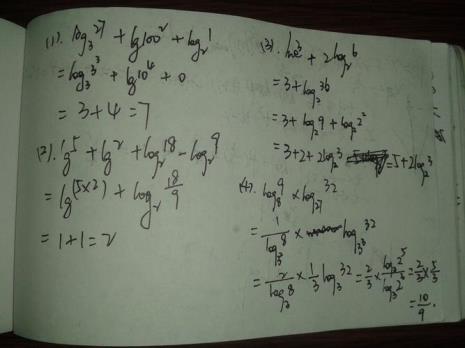 (1). log₃²⁷ + lg100² + log₂¹
= log₃3³ + lg10⁴ + 0
= 3+4=7
(2). lg⁵ + lg² + log₂¹⁸ - log₂⁹
= lg(5×2) + log₂ 18/9
= 1+1=2
(3). lne³ + 2log₂⁶
= 3+log₂36
= 3+log₂9 + log₂2²
= 3+2+2log₂³ =5+2log₂³
(4). log₈⁹ × log₂₇³²
= 1/log₉⁸ × log₃³³²
= 2/log₃8 × 1/3 log₃³² = 2/3 × log₃2⁵/log₃2³ = 2/3 × 5/3
= 10/9.